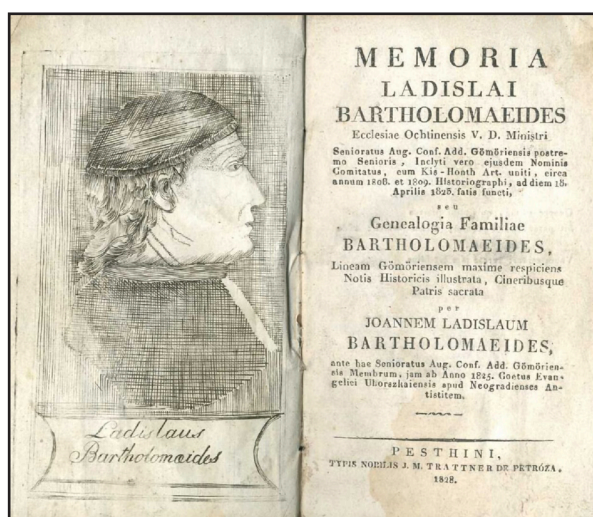 Ladislaus
Bartholomæides
MEMORIA
LADISLAI
BARTHOLOMAEIDES
Ecclesiae Ochtinensis V. D. Ministri
Senioratus Aug. Conf. Add. Gömöriensis postre-
mo Senioris, Inclyti vero ejusdem Nominis
Comitatus, cum Kis-Honth Art. uniti, circa
annum 1808. et 1809. Historiographi, ad diem 18.
Aprilis 1825. fatis functi,
seu
Genealogia Familiae
BARTHOLOMAEIDES,
Lineam Gömöriensem maxime respiciens
Notis Historicis illustrata, Cineribusque
Patris sacrata
per
JOANNEM LADISLAUM
BARTHOLOMAEIDES,
ante hac Senioratus Aug. Conf. Add. Gömörien-
sis Membrum, jam ab Anno 1825. Coetus Evan-
gelici Uhorszkaiensis apud Neogradienses An-
tistitem.
PESTHINI,
TYPIS NOBILIS J. M. TRATTNER DE PETRÓZA.
1828.